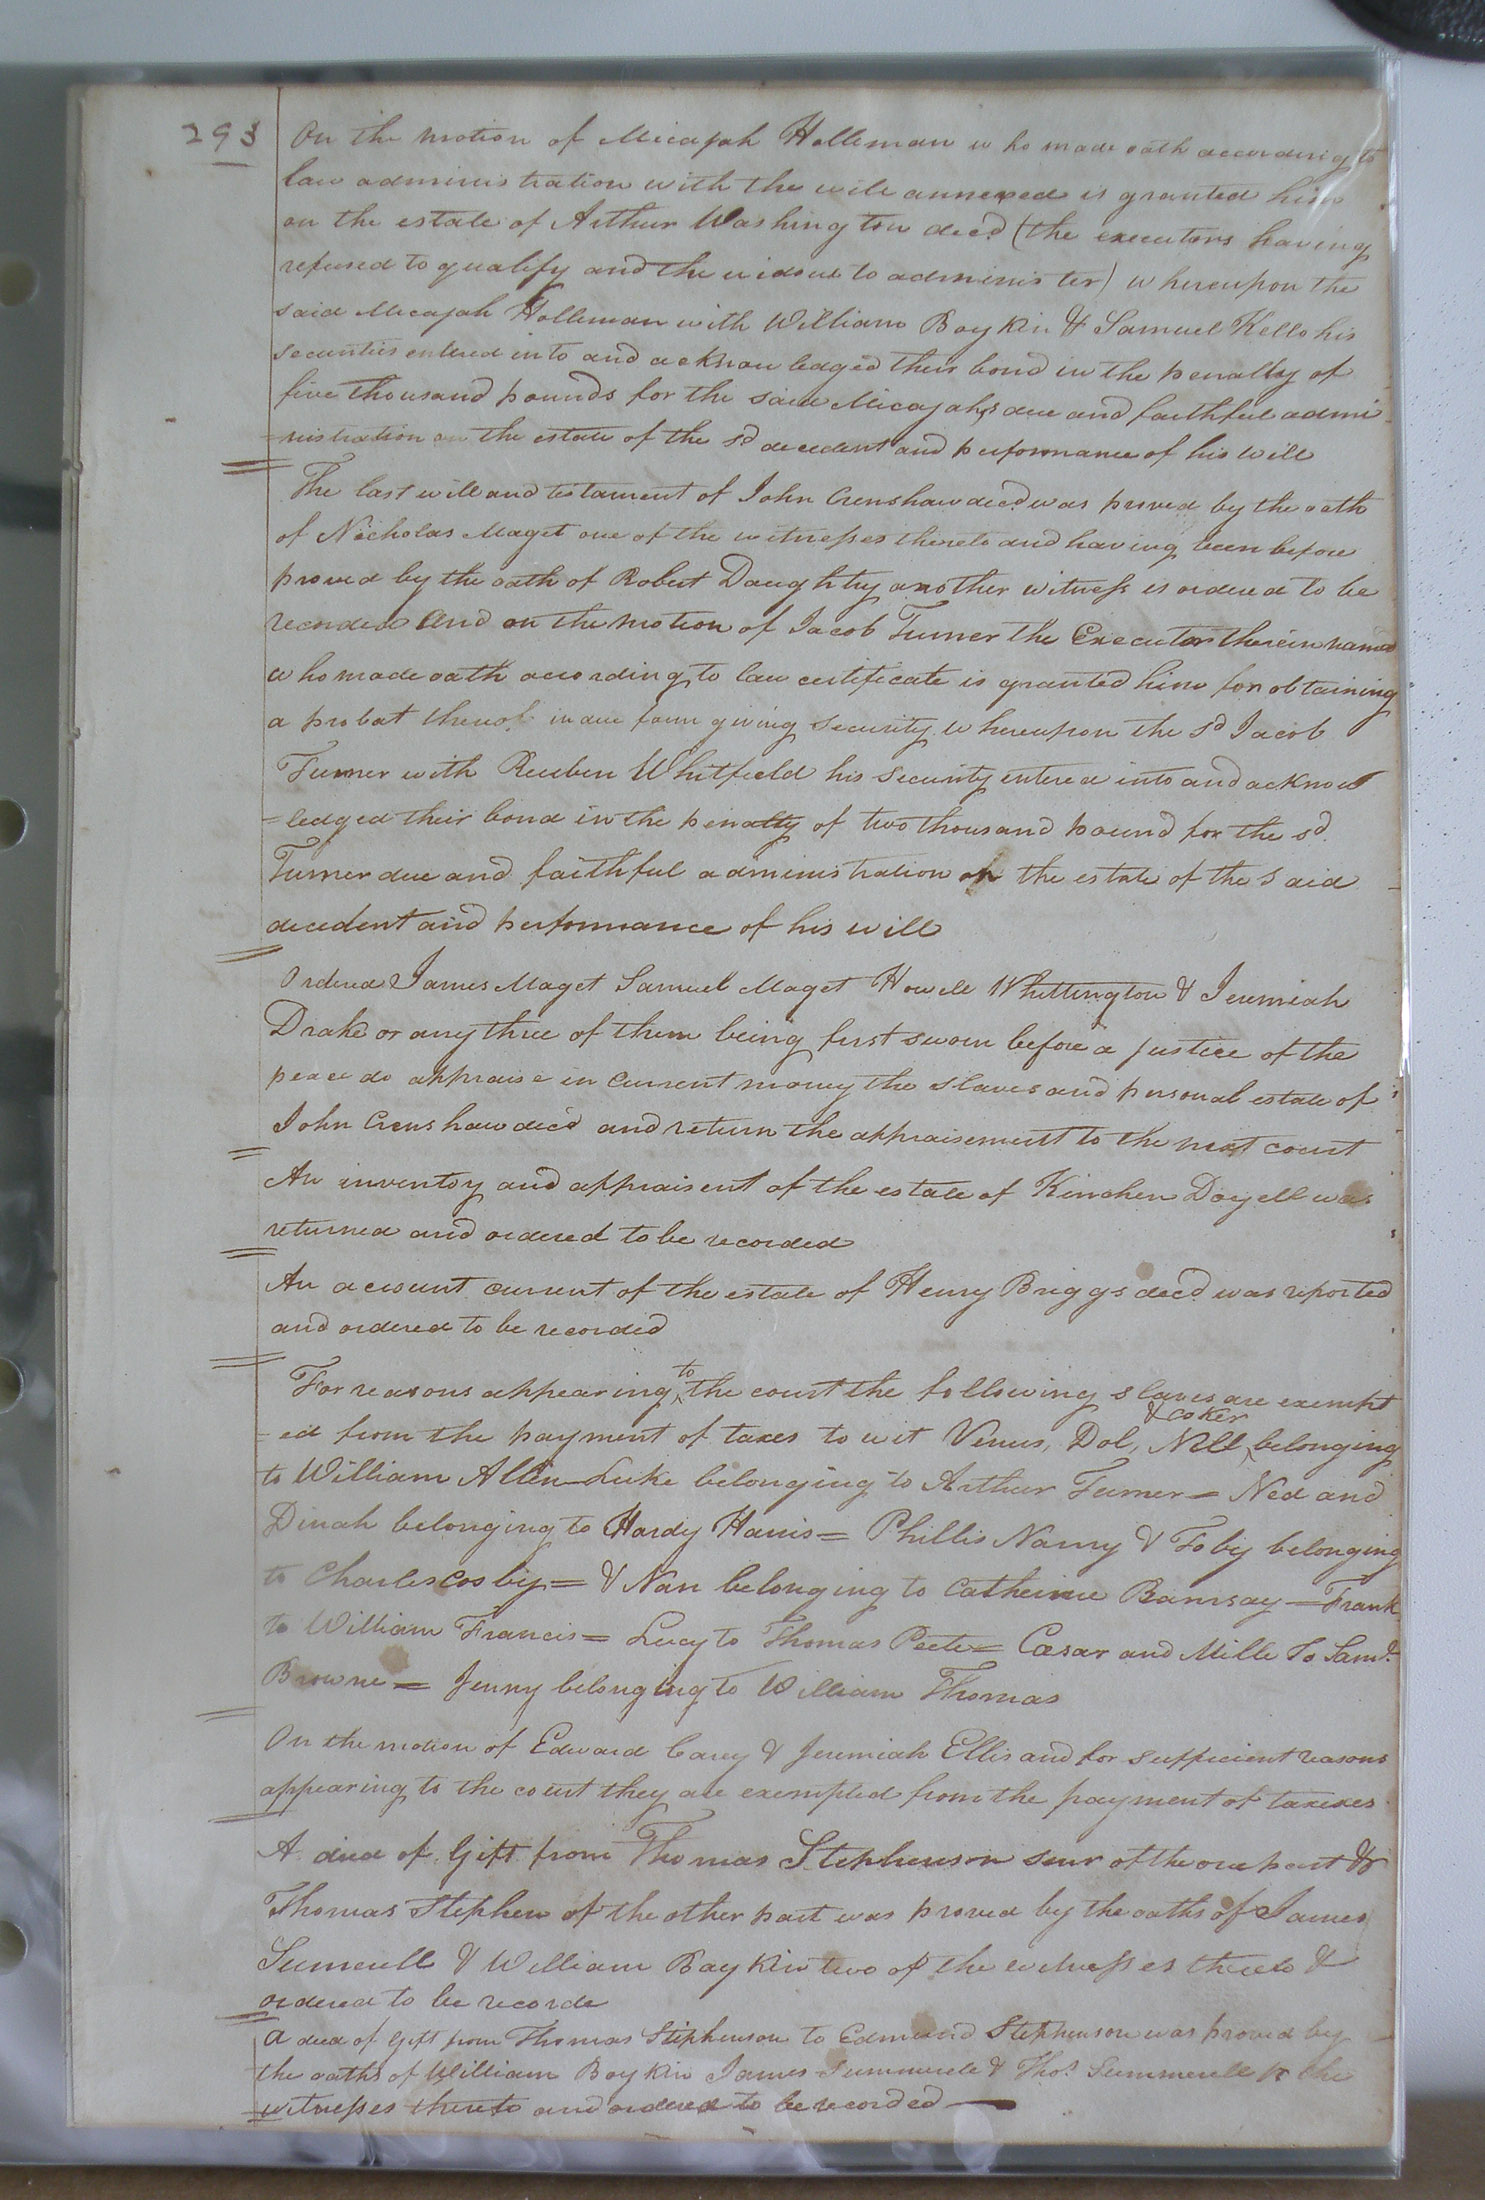 293
On the motion of Micajah Holleman who made oath according to
law administration with the will annexed is granted him
on the estate of Arthur Washington decd (the executors having
refused to qualify and the widow to administer) whereupon the
said Micajah Holleman with William Boykin & Samuel Kello his
securities entered into and acknowledged their bond in the penalty of
five thousand pounds for the said Micajahs due and faithful admi
=nistration on the estate of the sd decedent and performance of his will
The last will and testament of John Crenshaw decd was proved by the oath
of Nicholas Maget one of the witnesses thereto and having been before
proved by the oath of Robert Daughtry another witness is ordered to be
recorded And on the motion of Jacob Turner the Executor therein named
who made oath according to law certificate is granted him for obtaining
a probat thereof in due form giving security whereupon the sd Jacob
Turner with Reuben Whitfield his security entered into and acknow
=ledged their bond in the penalty of two thousand pound for the sd
Turner due and faithful administration on the estate of the said
decedent and performance of his will
Ordered James Maget Samuel Maget Howell Whittington & Jeremiah
Drake or any three of them being first sworn before a justice of the
peace do appraise in current money the slaves and personal estate of
John Crenshaw decd and return the appraisement to the next court
An inventoy and appraisent of the estate of Kinchen Doyell was
returned and ordered to be recorded
An account current of the estate of Henry Briggs decd was reported
and ordered to be recorded
For reasons appearing to the court the following slaves are exempt
=ed from the payment of taxes to wit Venus, Dol, Nell & Coker belonging
to William Allen—Luke belonging to Arthur Turner= Ned and
Dinah belonging to Hardy Harris= Phillis Nanny & Toby belonging
to Charles Cosby= & Nan belonging to Catherine Ramsay—Frank
to William Francis= Lucy to Thomas Peete= Cæsar and Mille To Saml
Browne= Jenny belonging to William Thomas
On the motion of Edward Carey & Jeremiah Ellis and for sufficient reasons
appearing to the court they are exempted from the payment of taxexes
A deed of Gift from Thomas Stephenson senr of the one part &
Thomas Stephen of the other part was proved by the oaths of James
Sumerell & William Boykin two of the witnesses thereto &
ordered to be recorde
A deed of Gift from Thomas Stephenson to Edmund Stephenson was proved by
the oaths of William Boykin James Summerell & Thos Summerell the
witnesses thereto and ordered to be recorded—